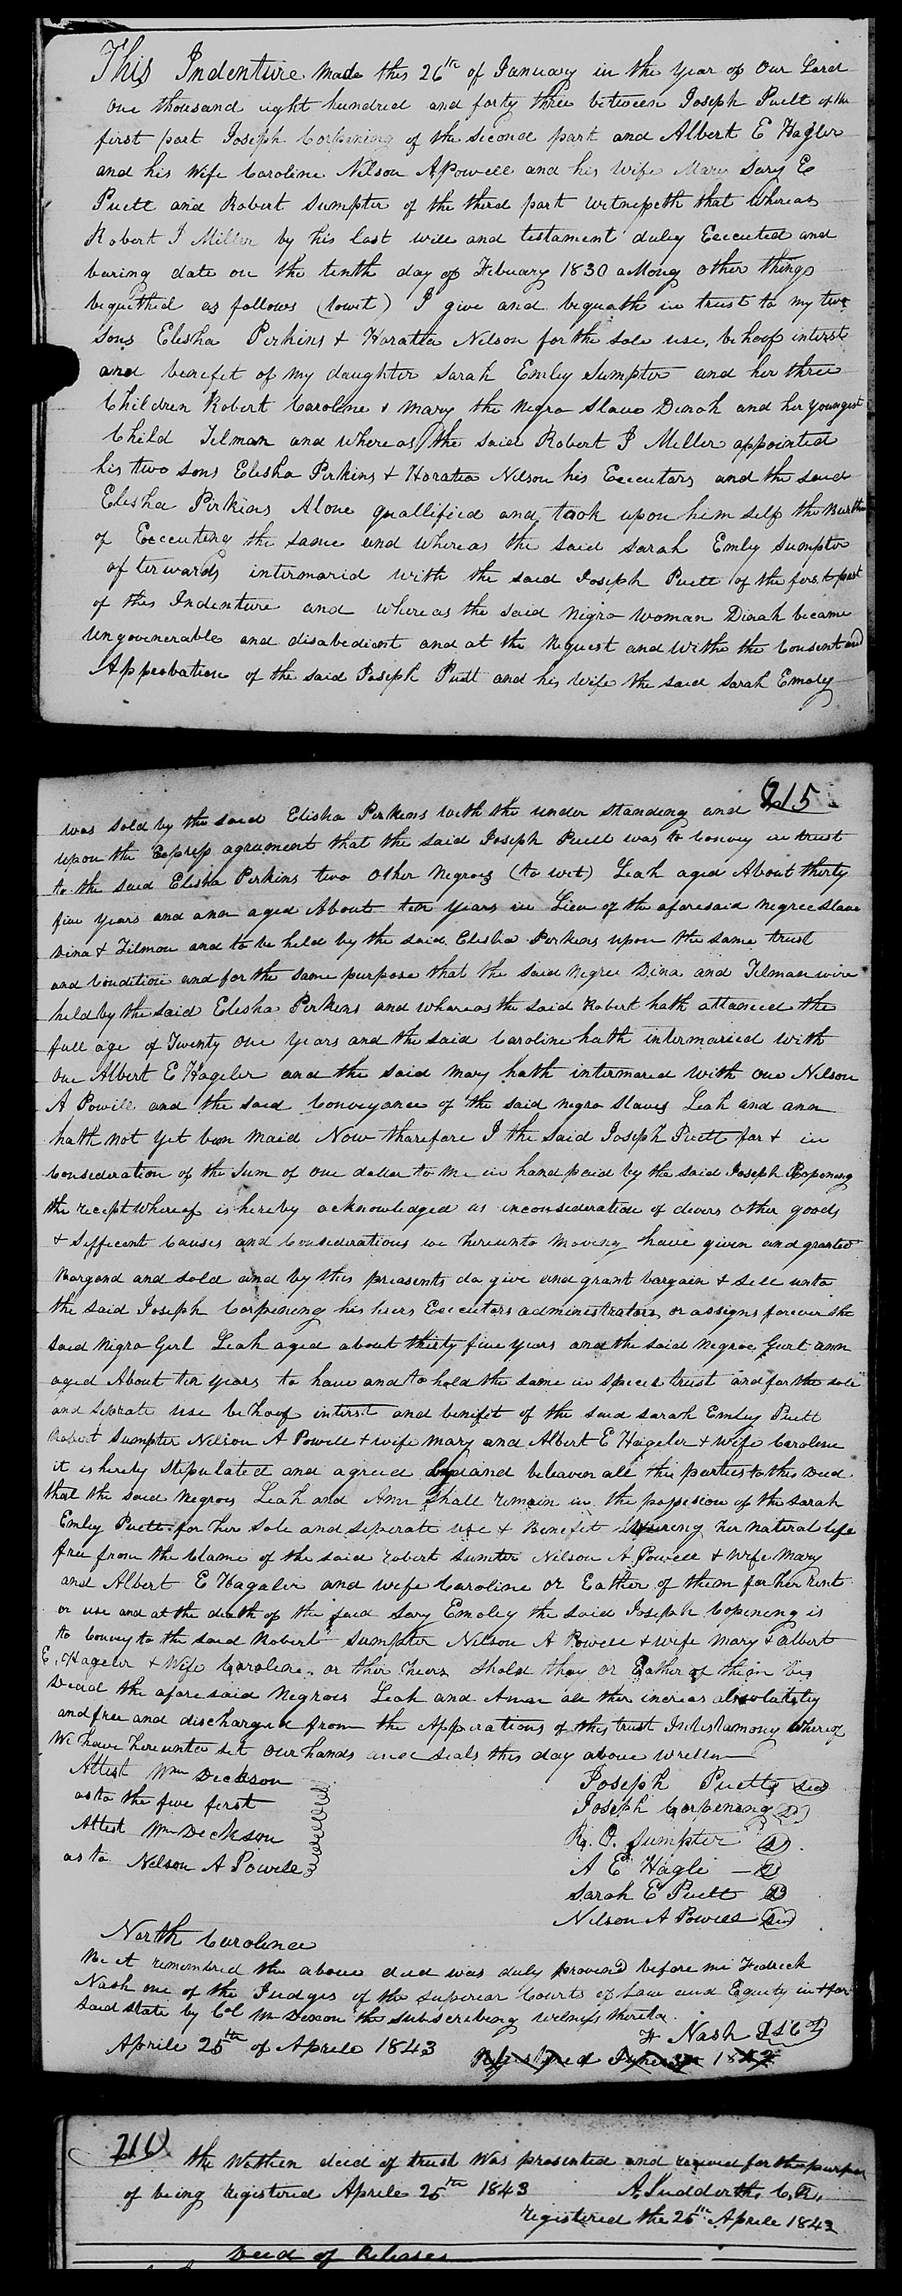 This Indenture made this 26th of January in the year of Our Lord
One thousand eight hundred and forty three between Joseph Puett of the
first part Joseph Corpening of the second part and Albert E Hagler
and his Wife Caroline Nilson A Powell and his wife Mary Sary E
Puett and Robert Sumpter of the third part witnesseth that whereas
Robert J Miller by his last will and testament duley Executed and
baring date on the tenth day of Febuary 1830 among other things
bequithed as follows (towit) I give and bequath in trust to my two
sons Elisha Perkins & Haratia Nelson for the sole use, behoof interst
and benefit of my daughter Sarah Emley Sumpter and her three
Children Robert Caroline & Mary the Negro Slave Dinah and her youngest
Child Tilman and whereas the said Robert J Miller appointed
his two sons Elisha Perkins & Horatia Nelson his Executors and the said
Elisha Pirkins Alone quallified and took upon him self the Burthen
of Executing the same and whereas the said Sarah Emly Sumpter
afterwards intermarid with the said Joseph Puett of the first part
of this Indenture and whereas the said Nigro woman Dinah became
ungovenerable and disabediant and at the Request and withe the Consent and
Approbation of the said Joseph Puett and his wife the said Sarah Emoly
215
was sold by the said Elisha Perkins with the under standing and
upon the Express agreument that the said Joseph Puett was to Convey in trust
to the said Elisha Perkins two Other Negroes (to wit) Leah aged About thirty
five years and ann aged About ten years in Lieu of the aforesaid negree slave
Dina & Tilmon and to be held by the said Elisha Perkins upon the same trust
and Condition and for the same purpose that the said Negree Dina and Tilman wire
held by the said Elisha Perkins and whereas the said Robert hath attained the
full age of Twenty One years and the said Caroline hath intermaried with
One Albert E Hageler and the said Mary hath intermared with One Nilson
A Powill and the said Conveyance of the said negro slaves Leah and ann
hath not yet ben maid Now tharefore I the said Joseph Puett for & in
Consideration of the sum of one dollar to me in hand paid by the said Joseph Copening
the recept whereof is hereby acknowledged as inconsideration of divers other goods
& Sifficent Causes and Considerations me hereunto moving have given and granted
Bargond and sold and by this preasents do give and grant bargain & sell unto
the said Joseph Corpening his heirs Executors administrators or assigns forever the
said Nigro Girl Leah aged about thirty five years and the said Negroe Gurl ann
aged About ten years to have and to hold the same in speces trust and for the sole
and Seprate use behoof interst and benifet of the said Sarah Emley Puett
Robert Sumpter Nilson A Powell & wife Mary and Albert E Hageler & wife Caroline
it is hereby stipulated and agreed by and between all the parties to this Deed
that the said Negroes Leah and Ann Shall remain in the possesion of the Sarah
Emley Puett for her Sole and seperate use & Benefit during her natural life
free from the Clame of the said robert Sumter Nilson A Powell & wife Mary
and Albert E Hagaler and wife Caroline or Eather of them for her Rent
or use and at the death of the said Sary Emoley the said Joseph Copening is
to Convey to the said Robert Sumpter Nilson A Powell & wife Mary & albert
E. Hageler & Wife Caroline or ther heirs Shold thay or Eather of them be
Decad the aforesaid Negroes Leah and Ann all ther increas absolutely
and free and discharged from the Apparations of this trust In testamony whereof
We have here unto set our hands and seals this day above wretten
Attest Wm Deckson
as to the five first
Attest Wm Deckson
as to Nelson A Powell
Joseph Puett seal
Joseph Corpening
R. O. Sumpter
A E Hagli
Sarah E Puett
Nilson A Powell seal
North Carolina
Be it remembred the above deed was duly proven before me Fedreck
Nash one of the Judges of the superear Courts of Law and Equity in & for
said state by Col Wm Dixon the subscribing witness thereto
Aprile 25th of Aprile 1843
F Nash
Registered 1843
216
the Within deed of trust Was prosented and receved for the purpose
of being registered Aprile 25th 1843 A. Sudderth C.R.
registered the 25th Aprile 1843
Deed of Releases